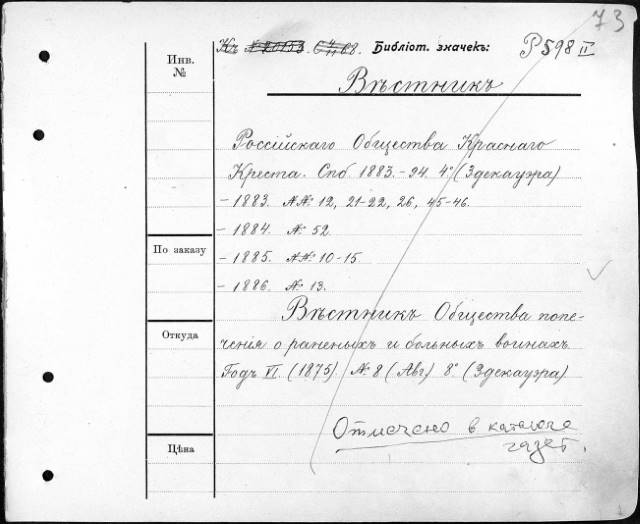 73
Библіот. значекъ: P 598 II
Инв.
№
Вѣстникъ
Россійскаго Общества Краснаго
Креста. Спб. 1883.-94. 4° (Здекауэра)
- 1883. №№ 12, 21-22, 26, 45-46.
- 1884. №. 52.
По заказу
- 1885. №№ 10-15.
- 1886. №. 13.
Вѣстникъ Общества попе-
Откуда
ченія о раненыхъ и больныхъ воинахъ.
Годъ VI. (1875). №. 8 (Авг.) 8°. (Здекауэра)
Отмечено в каталоге
газет.
Цѣна